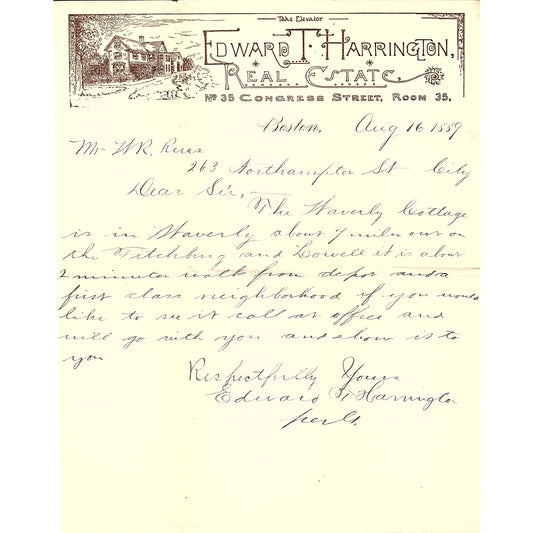 Take Elevator
EDWARD T. HARRINGTON,
REAL ESTATE.
No 35 CONGRESS STREET, ROOM 35,
Boston, Aug 16 1889
Mr W R.
263 Northampton St City
Dear Sir,
The Waverly Cottage
is in Waverly about 7 miles out on
the Fitchburg and Lowell it is about
2 minutes walk from depot and a
first class neighborhood if you would
like to see it call at office and
will go with you and show is to
you
Respectfully Yours
Edward T Harrington
per